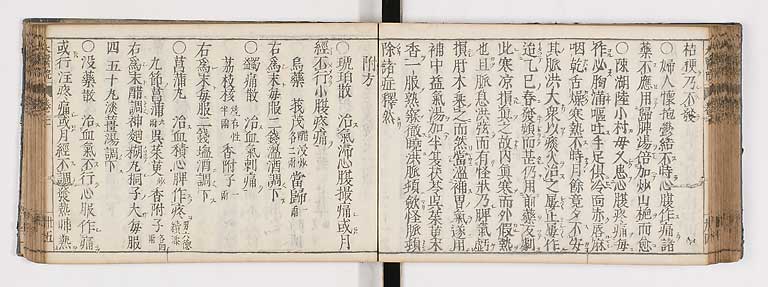 桔梗乃不發
○婦人懷抱鬱結不時心腹作痛諸
藥不應用歸脾湯倍加炒山梔而愈
○陳湖陸小村母久患心腹疼痛毎
作必胸滿嘔吐手足俱冷面赤唇麻
咽乾舌燥寒熱不時月餘竟夕不安
其脈洪大衆以痰火治之屢止屢作
迨乙巳春發頻而甚仍用前藥反劇
此寒凉損眞之故内眞寒而外假熱
也且脈息洪弦而有怪狀乃脾氣虧
損肝木乘之而然當溫補胃氣遂用
補中益氣湯加半夏茯苓吳茱萸木
香一服熟睡徹曉洪脈頓斂怪脈頓
除諸症釋然
附方
○琥珀散 治血氣滯心腹撮痛或月
經不行小腹疼痛
烏藥 莪茂 當歸
右爲末毎服二錢溫酒調下
○蠲痛散 治血氣刺痛
荔枝核 香附子
右爲末毎服二錢鹽酒調下
○菖蒲丸 治血積心脾作疼
九節菖蒲 吳茱萸 香附子
右爲末醋調神麴糊丸桐子大毎服
四五十丸淡薑湯調下
○沒藥散 治血氣不行心腹作痛
或行注疼痛或月經不調發熱晡熱